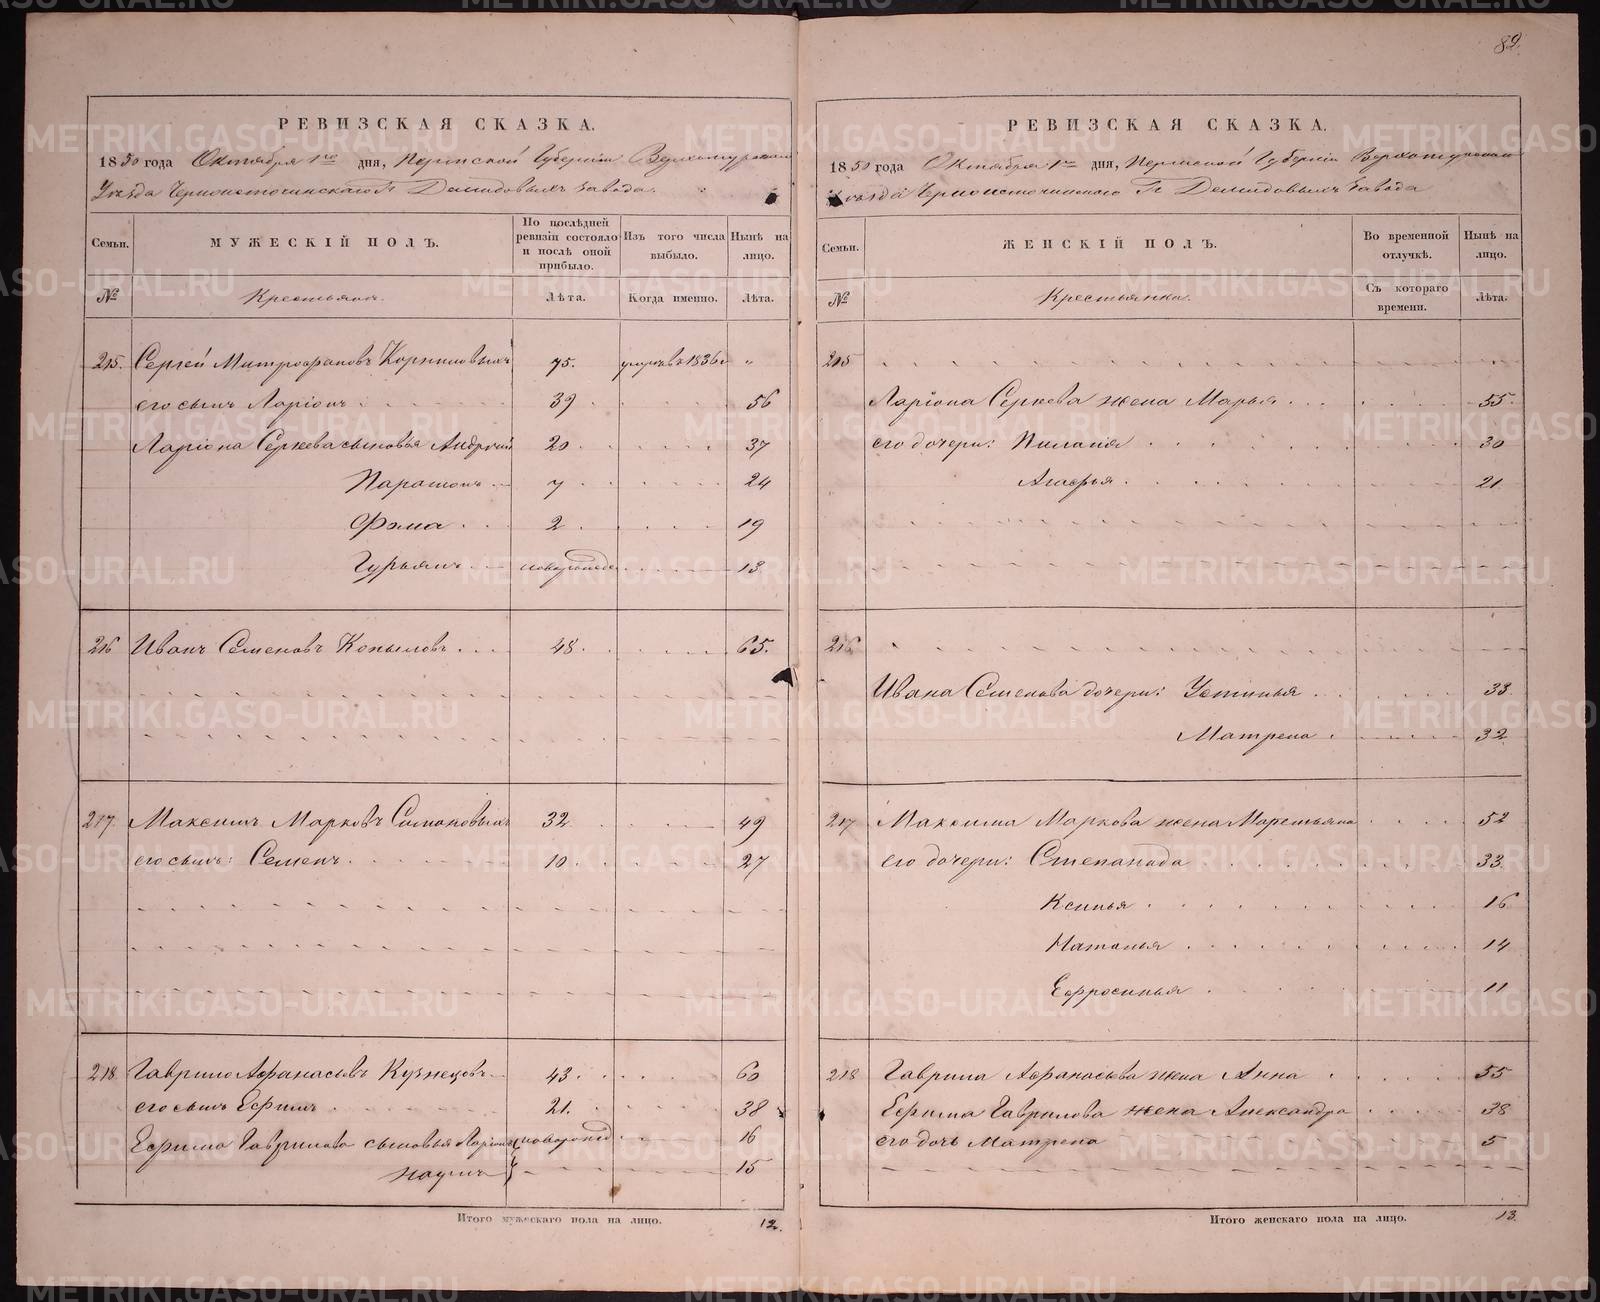 82.
РЕВИЗСКАЯ СКАЗКА.
1850 года Октября 1го дня, Пермской Губернии Верхотурскаго
Уезда Черноисточинскаго Гг Демидовыхъ завода.
Семьи.
МУЖЕСКІЙ ПОЛЪ.
По послѣдней ревизіи состояло и послѣ оной прибыло.
Изъ того числа выбыло.
Нынѣ на лицо.
№
Крестьяна.
Лѣта.
Когда именно.
Лѣта.
215. Сергей Митрофановъ Корниловыхъ 75. умеръ въ 1836 г "
его сынъ Ларіонъ 39 56
Ларіона Сергеева сыновья Андрей 20 37
Парамонъ 7 24
Фома 2 19
Гурьянъ новорожд 13
216 Иванъ Семеновъ Копыловъ 48. 65.
217. Максимъ Марковъ 32 49
его сынъ: Семенъ 10 27
218 Гаврило Афанасьевъ Кузнецовъ 43 60
его сынъ Ефимъ 21. 38
Ефима Гаврилова сыновья Ларіонъ новорожд 16
Наумъ 15
Итого мужескаго пола на лицо. 12.
РЕВИЗСКАЯ СКАЗКА.
1850 года Октября 1го дня, Пермской Губерніи Верхотурскаго
Уезда Черноисточинскаго Гг Демидовыхъ завода
Семьи.
ЖЕНСКІЙ ПОЛЪ.
Во временной отлучкѣ.
Нынѣ на лицо.
№
Крестьянка.
Съ котораго времени.
Лѣта.
215
Ларіона Сергеева жена Марья 55.
его дочери: Пиланія 30
Агафья 21
216
Ивана Семенова дочери: Устинья 33
Матрена 32
217 Максима Маркова жена Маремьяна 52
его дочери: Степанида 33
Ксинья 16
Наталья 14
Ефросинья 11
218 Гаврила Афанасьева жена Анна 55
Ефима Гаврилова жена Александра 38
его дочь Матрена 5
Итого женскаго пола на лицо. 13
METRIKI.GASO-URAL.RU